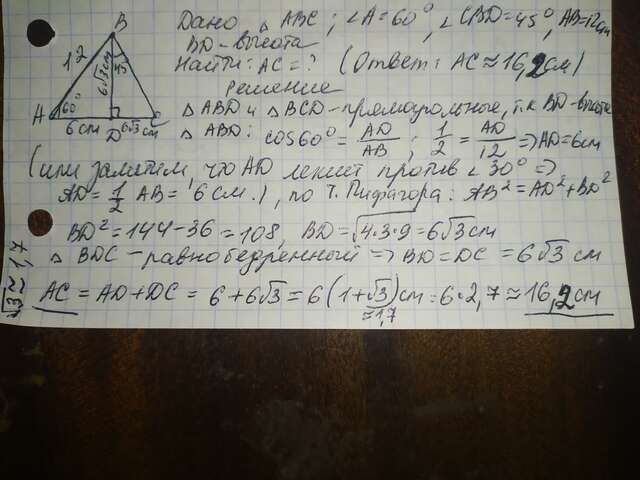 Дано △ABC; ∠A=60°, ∠CBD=45°, AB=12cm
BD-высота
Найти: AC=? (Ответ: AC≈16,2см)
Решение
△ABD и △BCD-прямоугольные, т.к BD-высота
△ABD: cos60°=AD/AB; 1/2=AD/12 ⇒AD=6см
(или заметим, что AD лежит против ∠30° ⇒
AD=1/2 AB=6см.), по т. Пифагора: AB²=AD²+BD²
BD²=144-36=108, BD=√4·3·9=6√3см
△ BDC-равнобедренный ⇒ BD=DC=6√3 см
AC=AD+DC=6+6√3=6(1+√3)см=6·2,7≈16,2см
≈1,7
√3≈1,7
B
12
6√3см
45°
A
60°
6см
D
6√3см
C